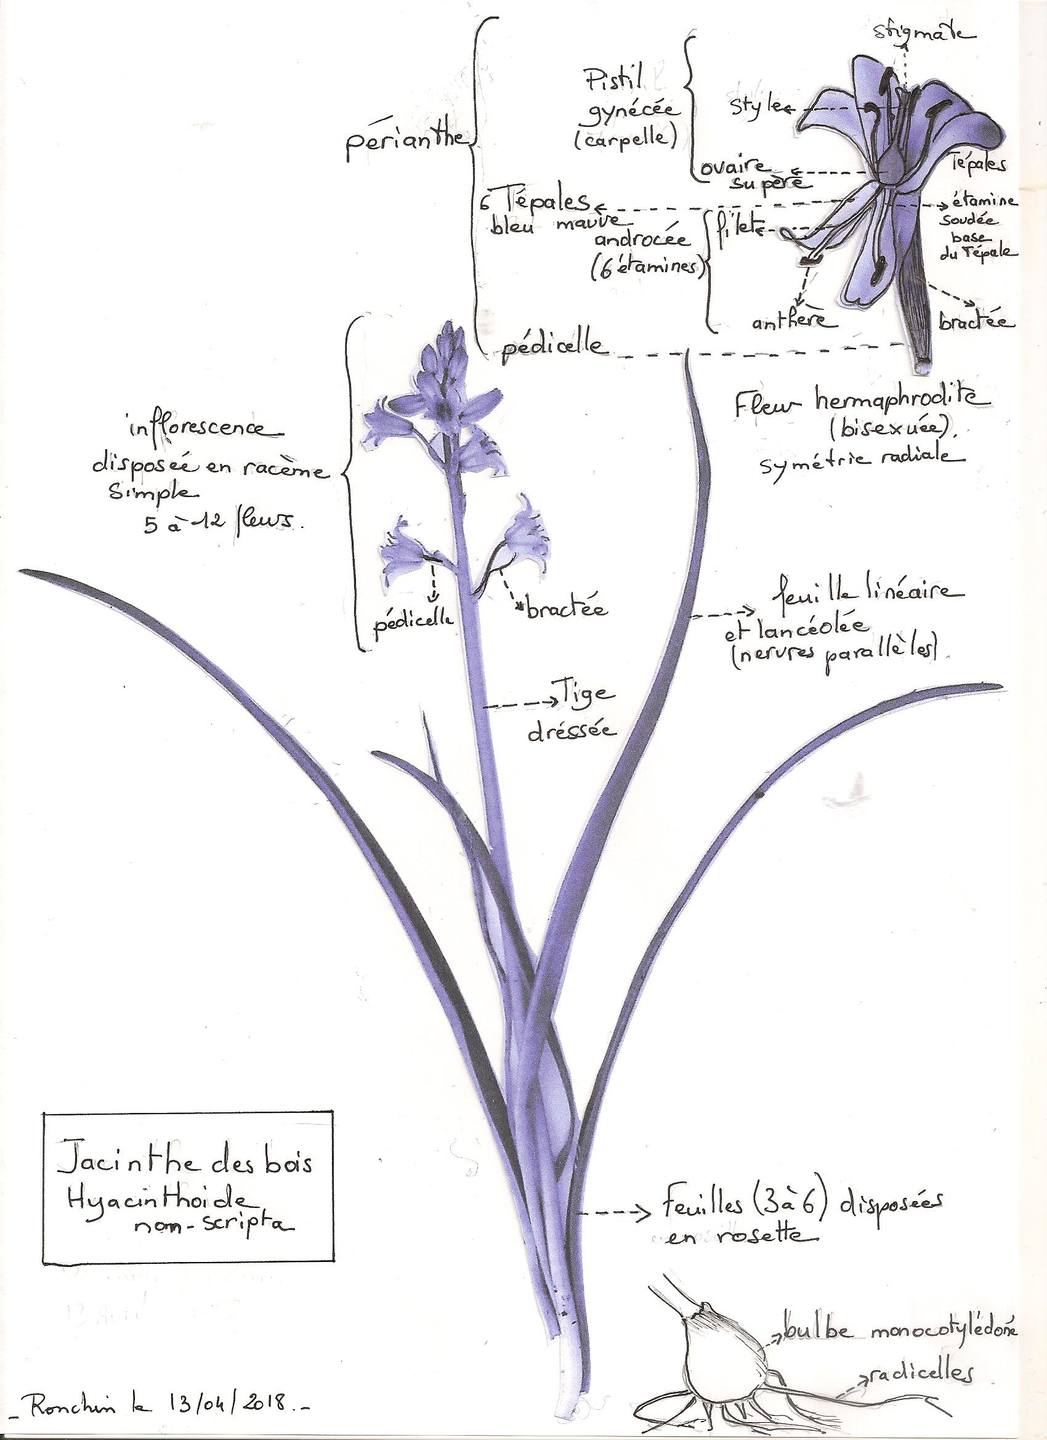 stigmate
Pistil
gynécée
(carpelle)
style
périanthe
ovaire
supère
Tépales
6 Tépales
bleu mauve
filet
étamine
soudée
base
du Tépale
androcée
(6 étamines)
anthère
bractée
pédicelle
Fleur hermaphrodite
(bisexuée).
symétrie radiale
inflorescence
disposée en racème
simple
5 à 12 fleurs.
pédicelle
bractée
feuille linéaire
et lancéolée
(nervures parallèles).
Tige
dréssée
Jacinthe des bois
Hyacinthoide
non-scripta
Feuilles (3 à 6) disposées
en rosette
bulbe monocotylédoné
radicelles
- Ronchin le 13/04/2018. -